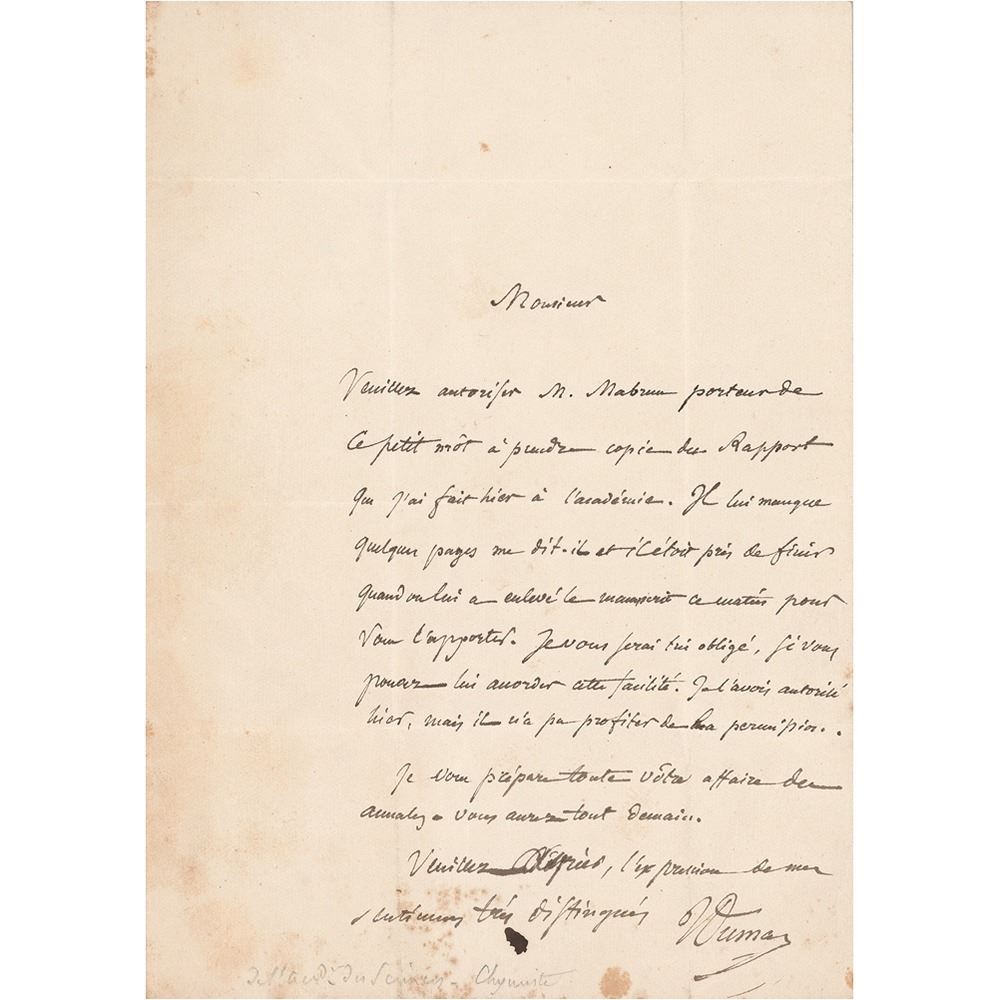 Monsieur
Veuillez autoriser M. Mabrun porteur de
ce petit môt à prendre copie du Rapport
que j'ai fait hier à l'académie. Il lui manque
quelques pages me dit-il et il étoit près de finir
quand on lui a enlevé le manuscrit ce matin pour
vous l'apporter. Je vous serai très obligé, si vous
pouvez lui accorder cette facilité. Je l'avois autorisé
hier, mais il n'a pu profiter de la permission.
Je vous prépare toute vôtre affaire des
annales vous aurez tout demain.
Veuillez, l'expression de mes
sentimens très distingués Dumas
de l'acad. des Sciences - Chymiste